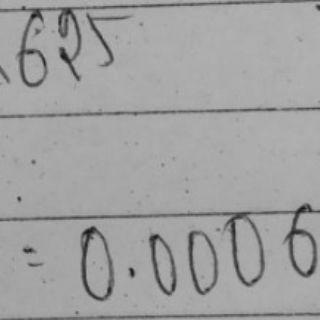 .625
= 0.0006